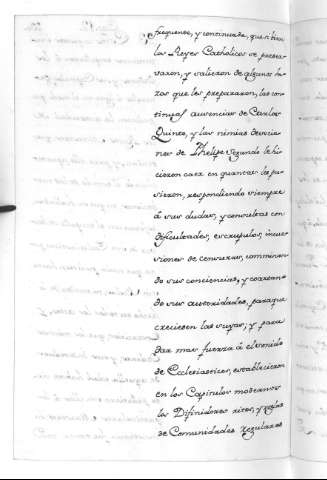 frequente, y continuada, que si bien
los Reyes Catholicos se preser-
varon, y salieron de algunos la-
zos que les prepararon, las con-
tinuas ausencias de Carlos
Quinto, y las nimias devocio-
nes de Phelipe Segundo le hi-
cieron caer en quantas le pu-
sieron, respondiendo siempre
á sus dudas, y consultas con
dificultades, escrupulos, incur-
siones de censuras, conminan-
do sus conciencias, y coartan-
do sus autoridades, paraque
creciesen las suyas, y para
dar mas fuerza á el
de Ecclesiasticos, establecieron
en los Capitulos modernos
los Difinidores ritos, y reglas
de Comunidades Regulares